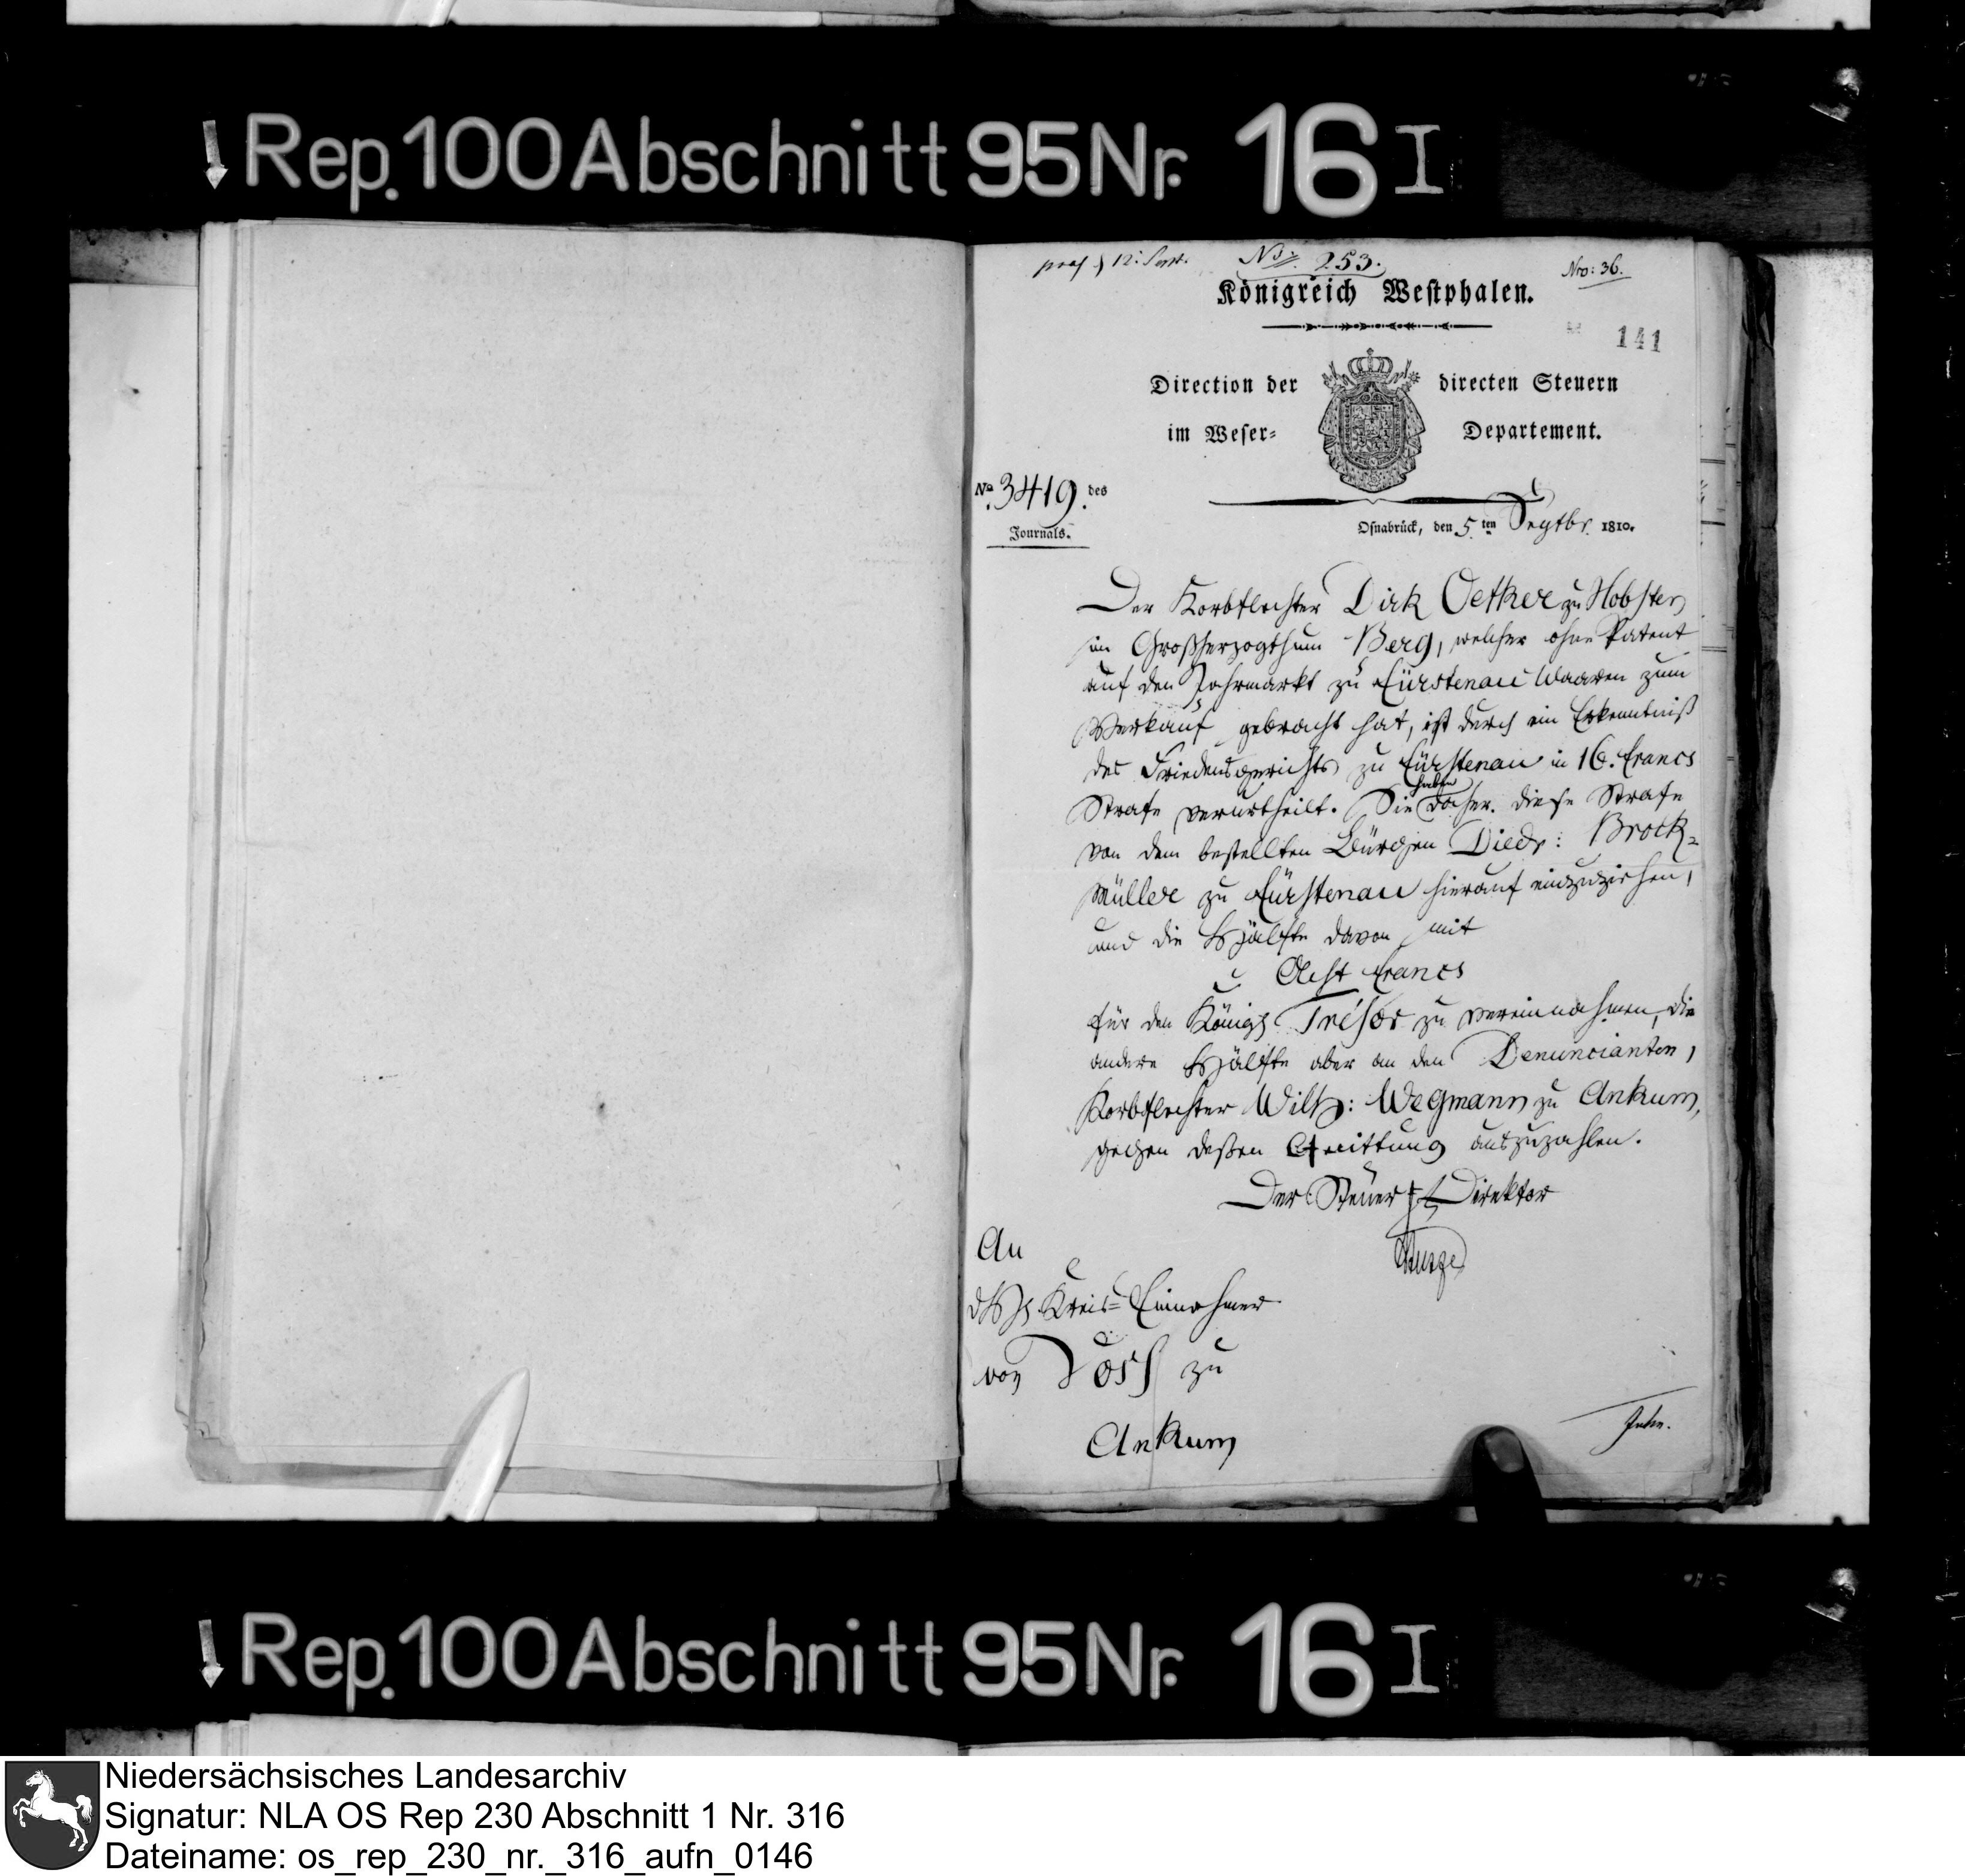 Rep. 100 Abschnitt 95 Nr. 16 I
praes. 12. Sept.
No. 253.
Nro: 36.
Königreich Westphalen.
141
Direction der directen Steuern
im Weser- Departement.
No. 3419. des
Journals.
Osnabrück, den 5ten Septbr. 1810.
Der Korbflechter Dirk Oetker zu Hobsten
im Großherzogthum Berg, welcher ohne Patent
auf den Jahrmarkt zu Fürstenau Waaren zum
Verkauf gebracht hat, ist durch ein Erkenntniß
des Friedensgerichts zu Fürstenau in 16. Francs
Strafe verurtheilt. Sie haben daher diese Strafe
von dem bestellten Bürgen Diedr: Brock-
müller zu Fürstenau hierauf einzuziehen,
und die Hälfte davon mit
Acht Francs
für den Königl. Trésor zu vereinnahmen, die
andere Hälfte aber an den Denuncianten,
Korbflechter Wilh: Wegmann zu Ankum,
gegen deßen Quittung auszuzahlen.
Der Steuer Direktor
An
d H. Kreis-Einnehmer
von Voss zu
Ankum
Rep. 100 Abschnitt 95 Nr. 16 I
Niedersächsisches Landesarchiv
Signatur: NLA OS Rep 230 Abschnitt 1 Nr. 316
Dateiname: os_rep_230_nr._316_aufn_0146